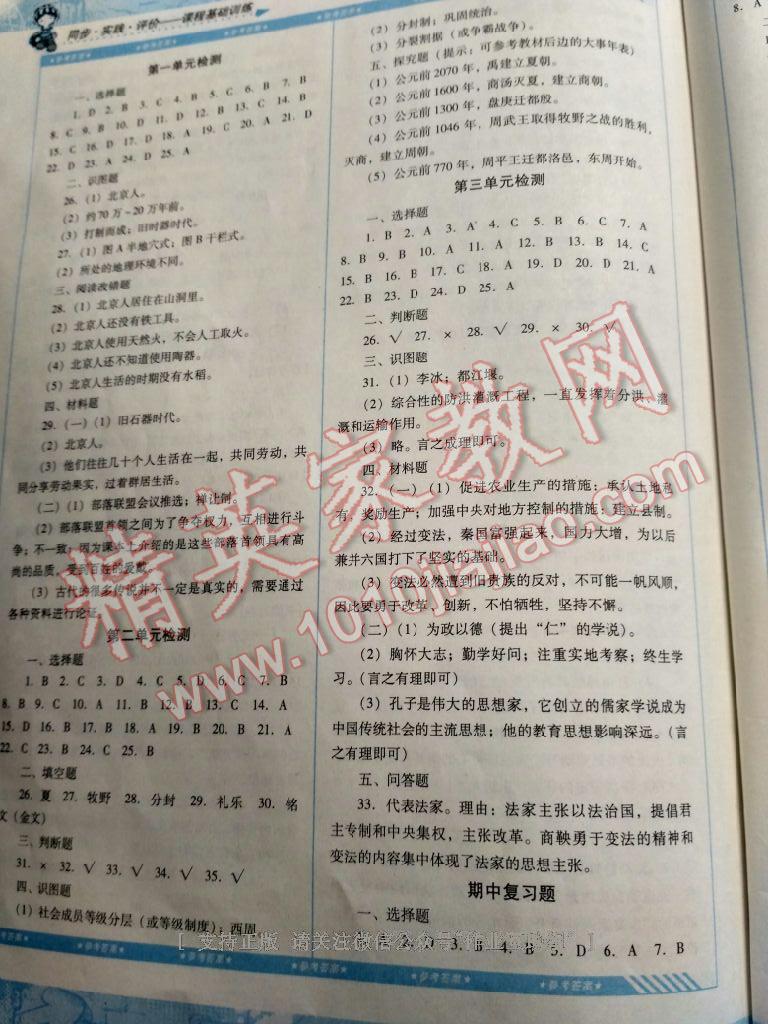 同步·实践·评价——课程基础训练
第一单元检测
一、选择题
1. D 2. B 3. C 4. B 5. C 6. B 7. B
8. C 9. B 10. D 11. D 12. B 13. C 14. B
15. C 16. D 17. D 18. A 19. C 20. A 21. D
22. D 23. A 24. D 25. A
二、识图题
26.（1）北京人。
（2）约70万～20万年前。
（3）打制而成；旧时器时代。
27.（1）图A半地穴式；图B干栏式。
（2）所处的地理环境不同。
三、阅读改错题
28.（1）北京人居住在山洞里。
（2）北京人还没有铁工具。
（3）北京人使用天然火，不会人工取火。
（4）北京人还不知道使用陶器。
（5）北京人生活的时期没有水稻。
四、材料题
29.（一）（1）旧石器时代。
（2）北京人。
（3）他们往往几十个人生活在一起，共同劳动，共
同分享劳动果实，过着群居生活。
（二）（1）部落联盟会议推选；禅让制。
（2）部落联盟首领之间为了争夺权力，互相进行斗
争；不一致；因为课本上介绍的是这些部落首领具有高
尚的品质，受到百姓的爱戴。
（3）古代的很多传说并不一定是真实的，需要通过
各种资料进行论证。
第二单元检测
一、选择题
1. B 2. C 3. D 4. C 5. D 6. C 7. B
8. B 9. C 10. A 11. B 12. B 13. B 14. C
15. D 16. B 17. D 18. B 19. B 20. B 21. A
22. C 23. B 24. C 25. B
二、填空题
26. 夏 27. 牧野 28. 分封 29. 礼乐 30. 铭
文（金文）
三、判断题
31. × 32. √ 33. √ 34. √ 35. √
四、识图题
（1）社会成员等级分层（或等级制度）；西周
（2）分封制；巩固统治。
（3）分裂割据（或争霸战争）。
五、探究题（提示：可参考教材后边的大事年表）
（1）公元前2070年，禹建立夏朝。
（2）公元前1600年，商汤灭夏，建立商朝。
（3）公元前1300年，盘庚迁都殷。
（4）公元前1046年，周武王取得牧野之战的胜利，
灭商，建立周朝。
（5）公元前770年，周平王迁都洛邑，东周开始。
第三单元检测
一、选择题
1. B 2. A 3. A 4. C 5. B 6. C 7. A
8. B 9. B 10. A 11. A 12. B 13. B 14. C
15. B 16. B 17. C 18. A 19. D 20. D 21. A
22. B 23. D 24. D 25. A
二、判断题
26. √ 27. × 28. √ 29. × 30. √
三、识图题
31.（1）李冰；都江堰。
（2）综合性的防洪灌溉工程，一直发挥着分洪、灌
溉和运输作用。
（3）略。言之成理即可。
四、材料题
32.（一）（1）促进农业生产的措施：承认土地私
有，奖励生产；加强中央对地方控制的措施：建立县制。
（2）经过变法，秦国富强起来，国力大增，为以后
兼并六国打下了坚实的基础。
（3）变法必然遭到旧贵族的反对，不可能一帆风顺，
因此要勇于改革，创新，不怕牺牲，坚持不懈。
（二）（1）为政以德（提出“仁”的学说）。
（2）胸怀大志；勤学好问；注重实地考察；终生学
习。（言之有理即可）
（3）孔子是伟大的思想家，它创立的儒家学说成为
中国传统社会的主流思想；他的教育思想影响深远。（言
之有理即可）
五、问答题
33. 代表法家。理由：法家主张以法治国，提倡君
主专制和中央集权，主张改革。商鞅勇于变法的精神和
变法的内容集中体现了法家的思想主张。
期中复习题
一、选择题
3. B 4. B 5. D 6. A 7. B
8. A
参考答案
精英家教网
www.1010jiajiao.com